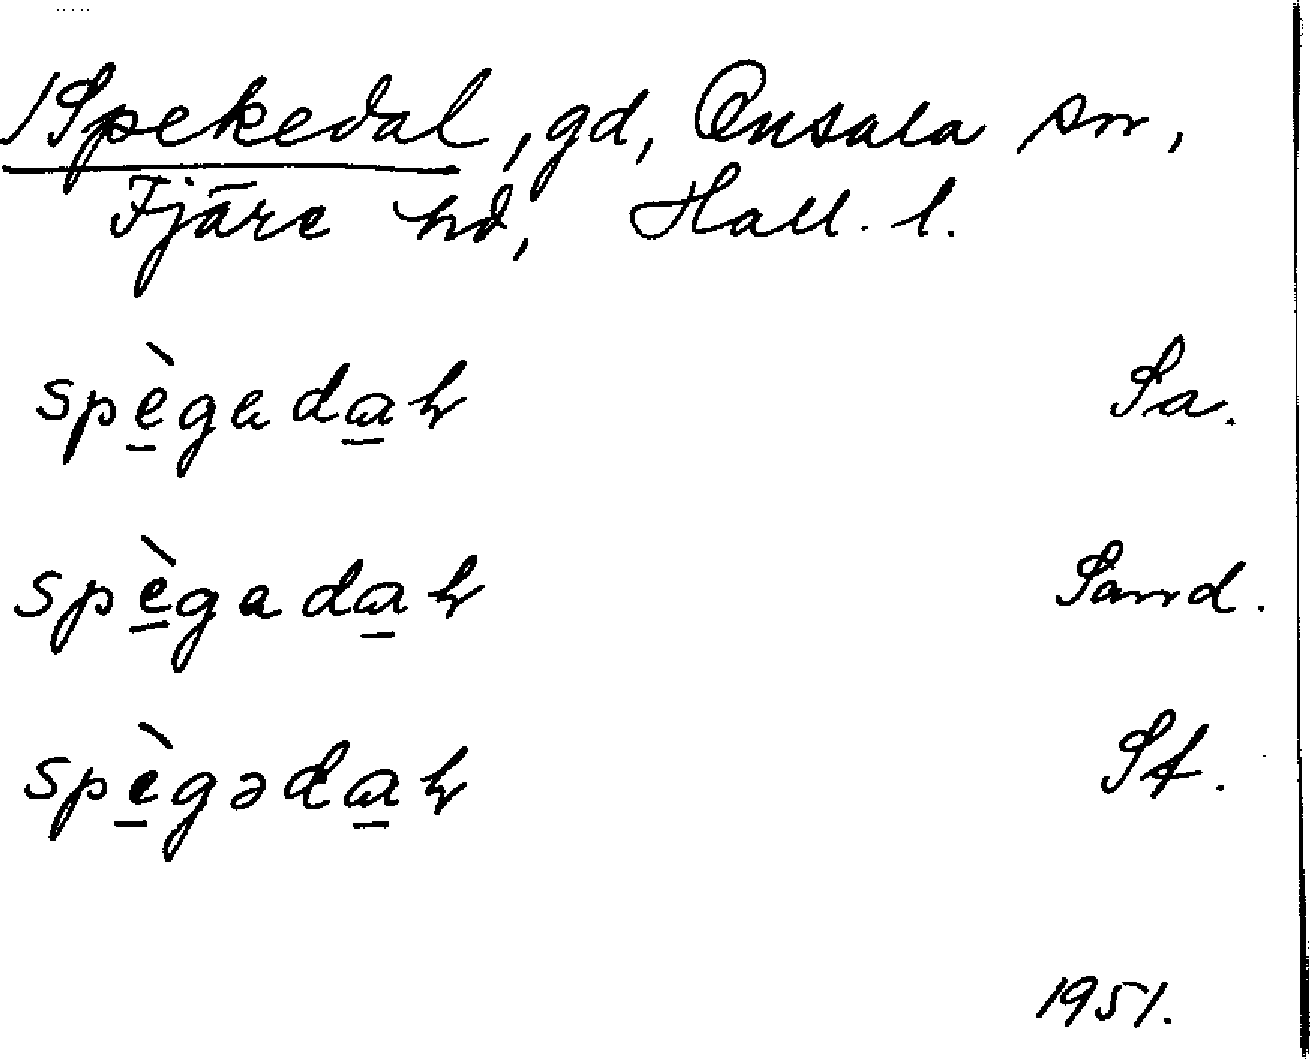 Spekedal, gd, Onsala sn,
Fjäre hd, Hall. l.
spègadaɫ Sa.
spègadaɫ Sand.
spègədaɫ St.
1951.